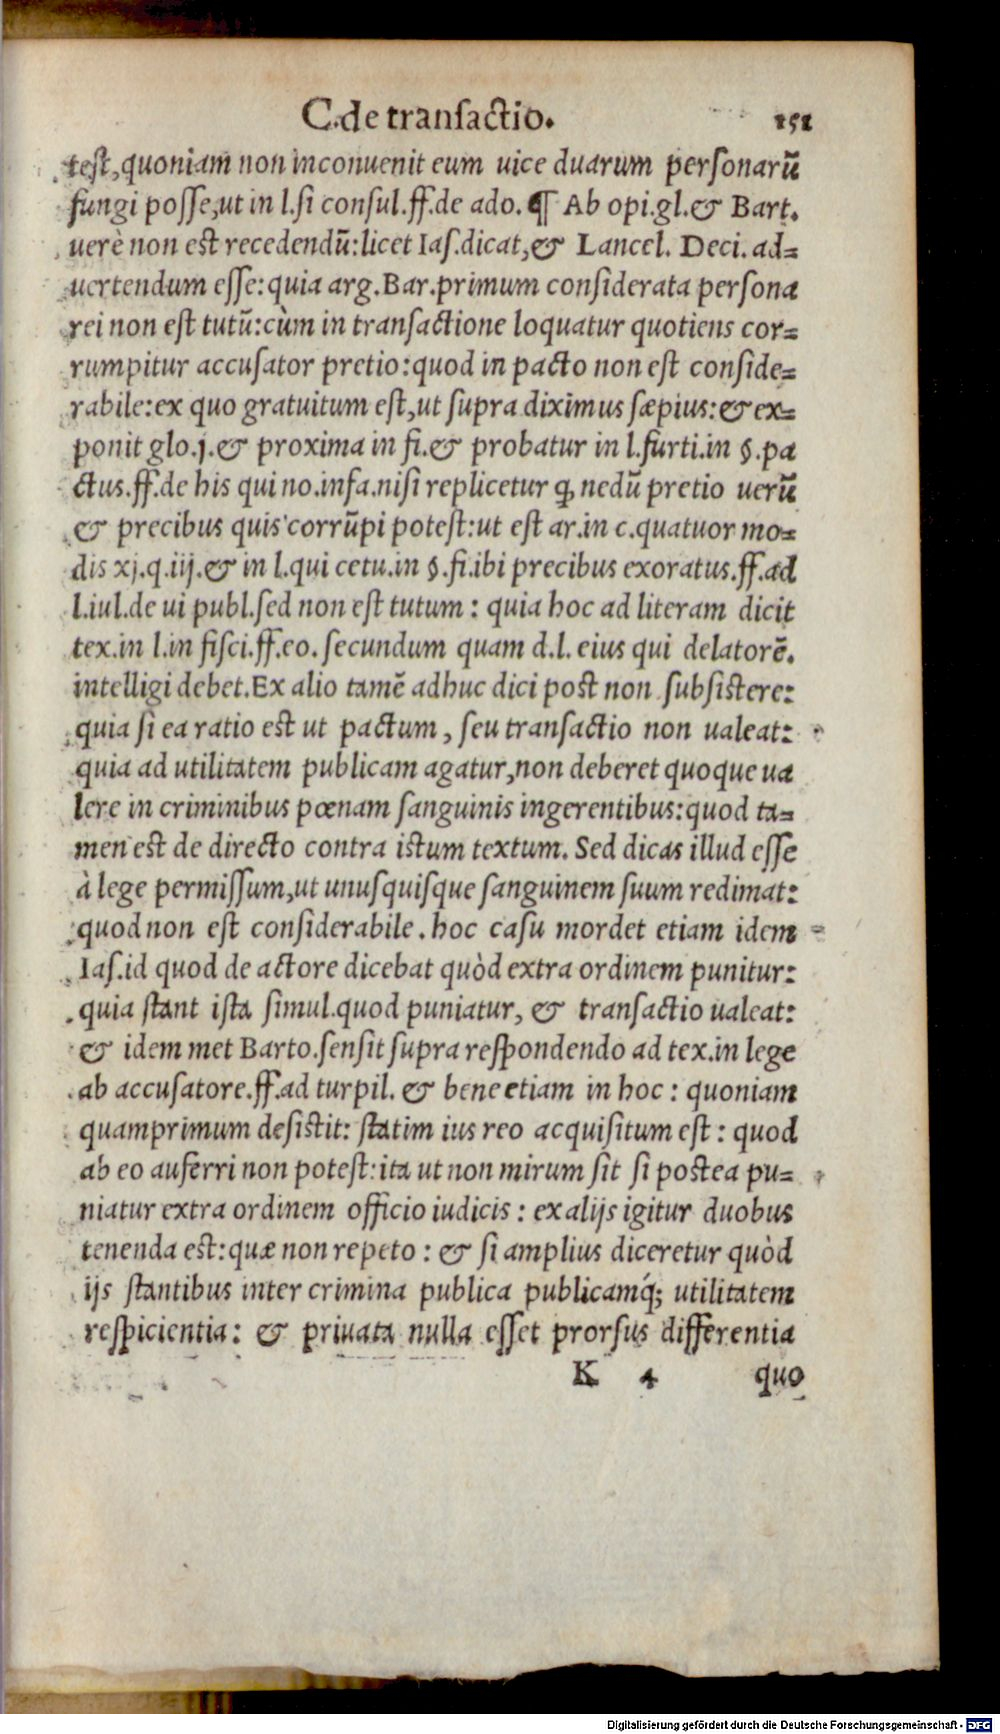 C. de transactio. 151
test, quoniam non inconuenit eum uice duarum personarū
fungi posse, ut in l. si consul. ff. de ado. ¶ Ab opi. gl. & Bart.
uerè non est recedendū: licet Ias. dicat, & Lancel. Deci. ad=
uertendum esse: quia arg. Bar. primum considerata persona
rei non est tutū: cùm in transactione loquatur quotiens cor=
rumpitur accusator pretio: quod in pacto non est conside=
rabile: ex quo gratuitum est, ut supra diximus sæpius: & ex=
ponit glo. j. & proxima in fi. & probatur in l. furti. in §. pa
ctus. ff. de his qui no. infa. nisi replicetur ꝙ nedū pretio uerū
& precibus quis corrūpi potest: ut est ar. in c. quatuor mo=
dis xj. q. iij. & in l. qui cetu. in §. fi. ibi precibus exoratus. ff. ad
l. iul. de ui publ. sed non est tutum : quia hoc ad literam dicit
tex. in l. in fisci. ff. eo. secundum quam d. l. eius qui delatorē.
intelligi debet. Ex alio tamē adhuc dici post non subsistere:
quia si ea ratio est ut pactum, seu transactio non ualeat:
quia ad utilitatem publicam agatur, non deberet quoque ua
lere in criminibus pœnam sanguinis ingerentibus: quod ta=
men est de directo contra istum textum. Sed dicas illud esse
à lege permissum, ut unusquisque sanguinem suum redimat:
quod non est considerabile. hoc casu mordet etiam idem
Ias. id quod de actore dicebat quòd extra ordinem punitur:
quia stant ista simul. quod puniatur, & transactio ualeat:
& idem met Barto. sensit supra respondendo ad tex. in lege
ab accusatore. ff. ad turpil. & bene etiam in hoc : quoniam
quamprimum desistit: statim ius reo acquisitum est : quod
ab eo auferri non potest: ita ut non mirum sit si postea pu=
niatur extra ordinem officio iudicis : ex alijs igitur duobus
tenenda est: quæ non repeto : & si amplius diceretur quòd
ijs stantibus inter crimina publica publicamq́; utilitatem
respicientia: & priuata nulla esset prorsus differentia
K 4 quo
Digitalisierung gefördert durch die Deutsche Forschungsgemeinschaft - DFG